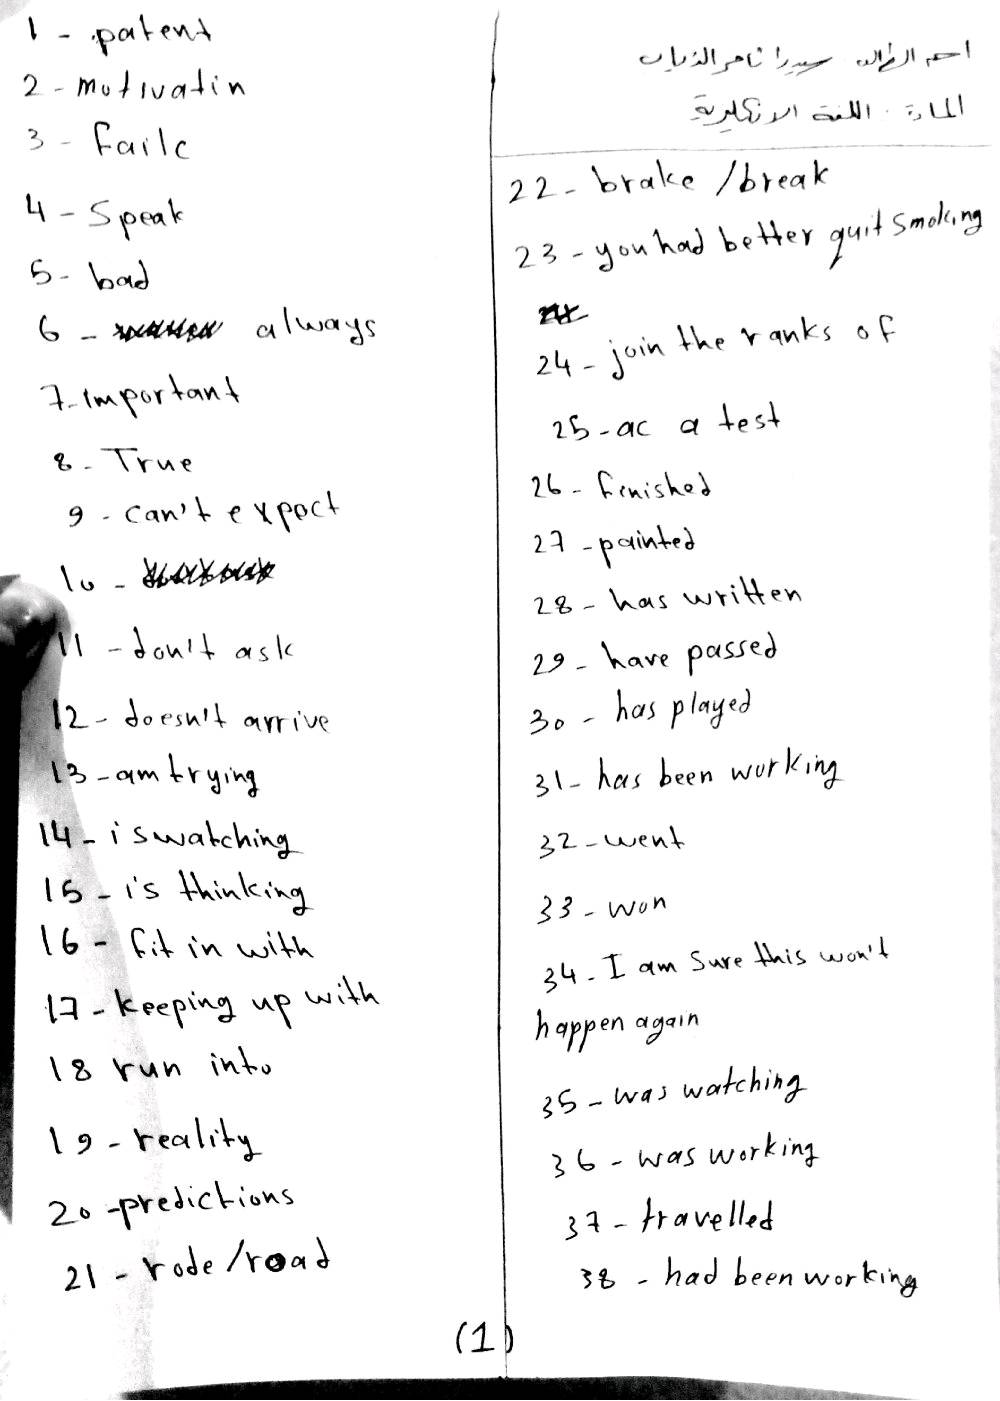 1 - patent
2 - motivatin
3 - Faile
4 - Speak
5 - bad
6 - always
7 - important
8 - True
9 - can't expect
10 -
11 - don't ask
12 - doesn't arrive
13 - am trying
14 - is watching
15 - is thinking
16 - fit in with
17 - keeping up with
18 run into
19 - reality
20 - predictions
21 - rode / road
اسم الطالب سيدرا ثامر الذياب
المادة: اللغة الانكليزية
22 - brake / break
23 - you had better quit smoking
24 - join the ranks of
25 - ac a test
26 - finished
27 - painted
28 - has written
29 - have passed
30 - has played
31 - has been working
32 - went
33 - won
34 - I am sure this won't
happen again
35 - was watching
36 - was working
37 - travelled
38 - had been working
(1)